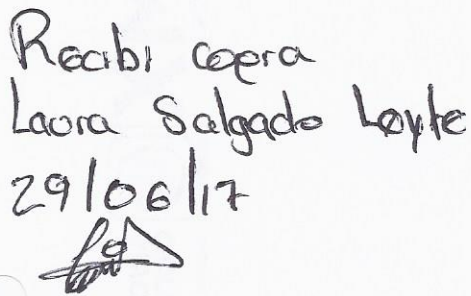 Recibi copia
Laura Salgado Leyte
29/06/17